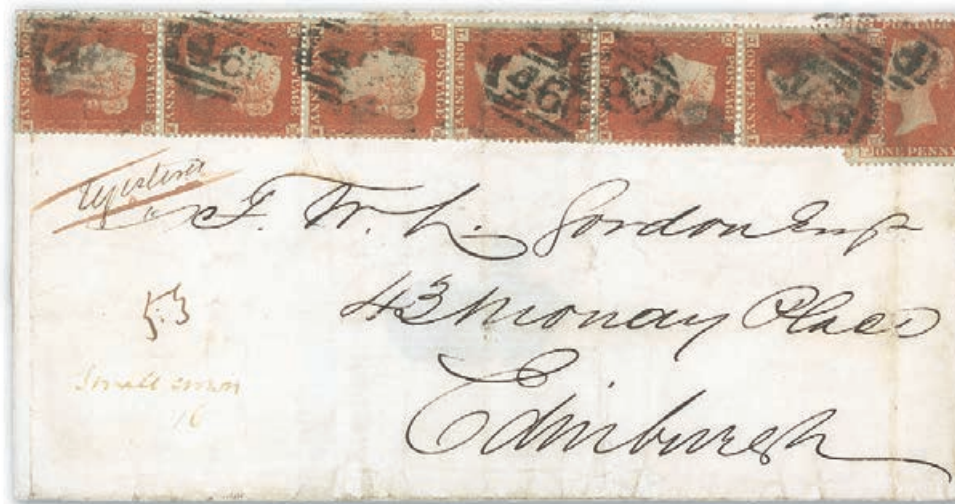 ONE PENNY
POSTAGE
46
ONE PENNY
Registered
F. W. L. Gordon Esqr
43 Moray Place
Edinburgh
53
Small crown
16